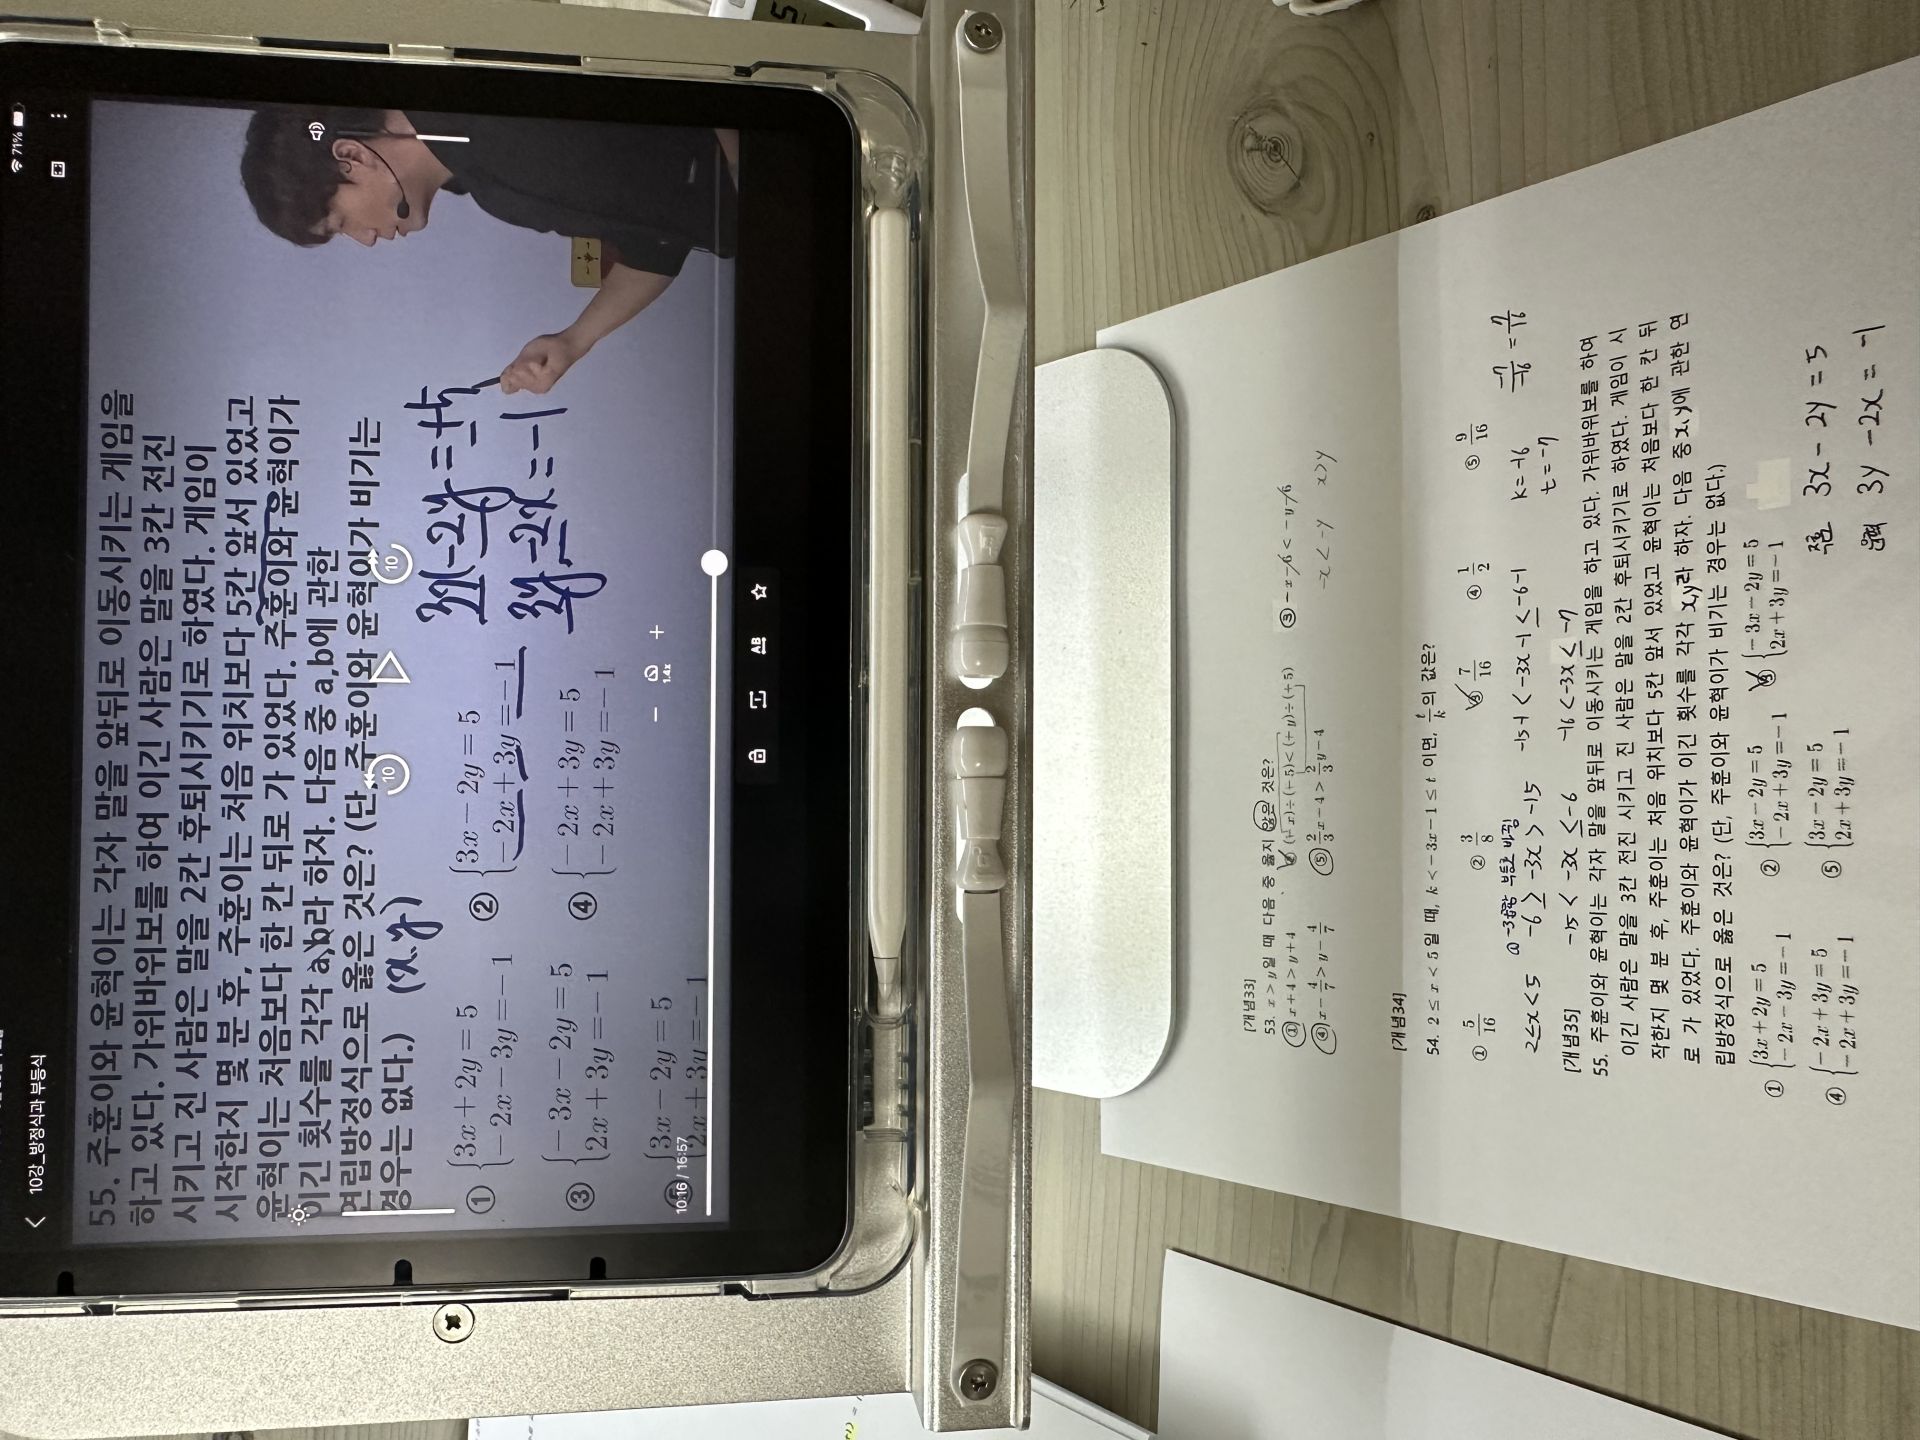 71%
10강_방정식과 부등식
55. 주훈이와 윤혁이는 각자 말을 앞뒤로 이동시키는 게임을
하고 있다. 가위바위보를 하여 이긴 사람은 말을 3칸 전진
시키고 진 사람은 말을 2칸 후퇴시키기로 하였다. 게임이
시작한지 몇 분 후, 주훈이는 처음 위치보다 5칸 앞서 있었고
윤혁이는 처음보다 한 칸 뒤로 가 있었다. 주훈이와 윤혁이가
이긴 횟수를 각각 a,b라 하자. 다음 중 a,b에 관한
연립방정식으로 옳은 것은? (단, 주훈이와 윤혁이가 비기는
경우는 없다.) (x.y)
3x-2y=+5
3y-2x=-1
① {3x+2y=5 ② {3x-2y=5
-2x-3y=-1 -2x+3y=-1
③ {-3x-2y=5 ④ {-2x+3y=5
2x+3y=-1 -2x+3y=-1
⑤ {3x-2y=5
2x+3y=-1
10:16 / 16:57
10
10
1.4x
AB
[개념33]
53. x > y일 때 다음 중 옳지 않은 것은?
① x+4>y+4 ② (+x)÷(+5)<(+y)÷(+5) ③ -x-6<-y-6
④ x-4/7>y-4/7 ⑤ 2/3x-4>2/3y-4
-x<-y x>y
[개념34]
54. 2≤x<5일 때, k<-3x-1≤t 이면, t/k의 값은?
① 5/16 ② 3/8 ③ 7/16 ④ 1/2 ⑤ 9/16
2≤x<5
-6≥-3x>-15 -15-1<-3x-1≤-6-1 k=-16 -7/-16=7/16
-15<-3x≤-6 -16<-3x≤-7 t=-7
[개념35]
55. 주훈이와 윤혁이는 각자 말을 앞뒤로 이동시키는 게임을 하고 있다. 가위바위보를 하여
이긴 사람은 말을 3칸 전진 시키고 진 사람은 말을 2칸 후퇴시키기로 하였다. 게임이 시
작한지 몇 분 후, 주훈이는 처음 위치보다 5칸 앞서 있었고 윤혁이는 처음보다 한 칸 뒤
로 가 있었다. 주훈이와 윤혁이가 이긴 횟수를 각각 x,y라 하자. 다음 중 x,y에 관한 연
립방정식으로 옳은 것은? (단, 주훈이와 윤혁이가 비기는 경우는 없다.)
① {3x+2y=5 ② {3x-2y=5 ③ {-3x-2y=5
-2x-3y=-1 -2x+3y=-1 2x+3y=-1
④ {-2x+3y=5 ⑤ {3x-2y=5
-2x+3y=-1 2x+3y=-1
주훈 3x-2y=5
윤혁 3y-2x=-1